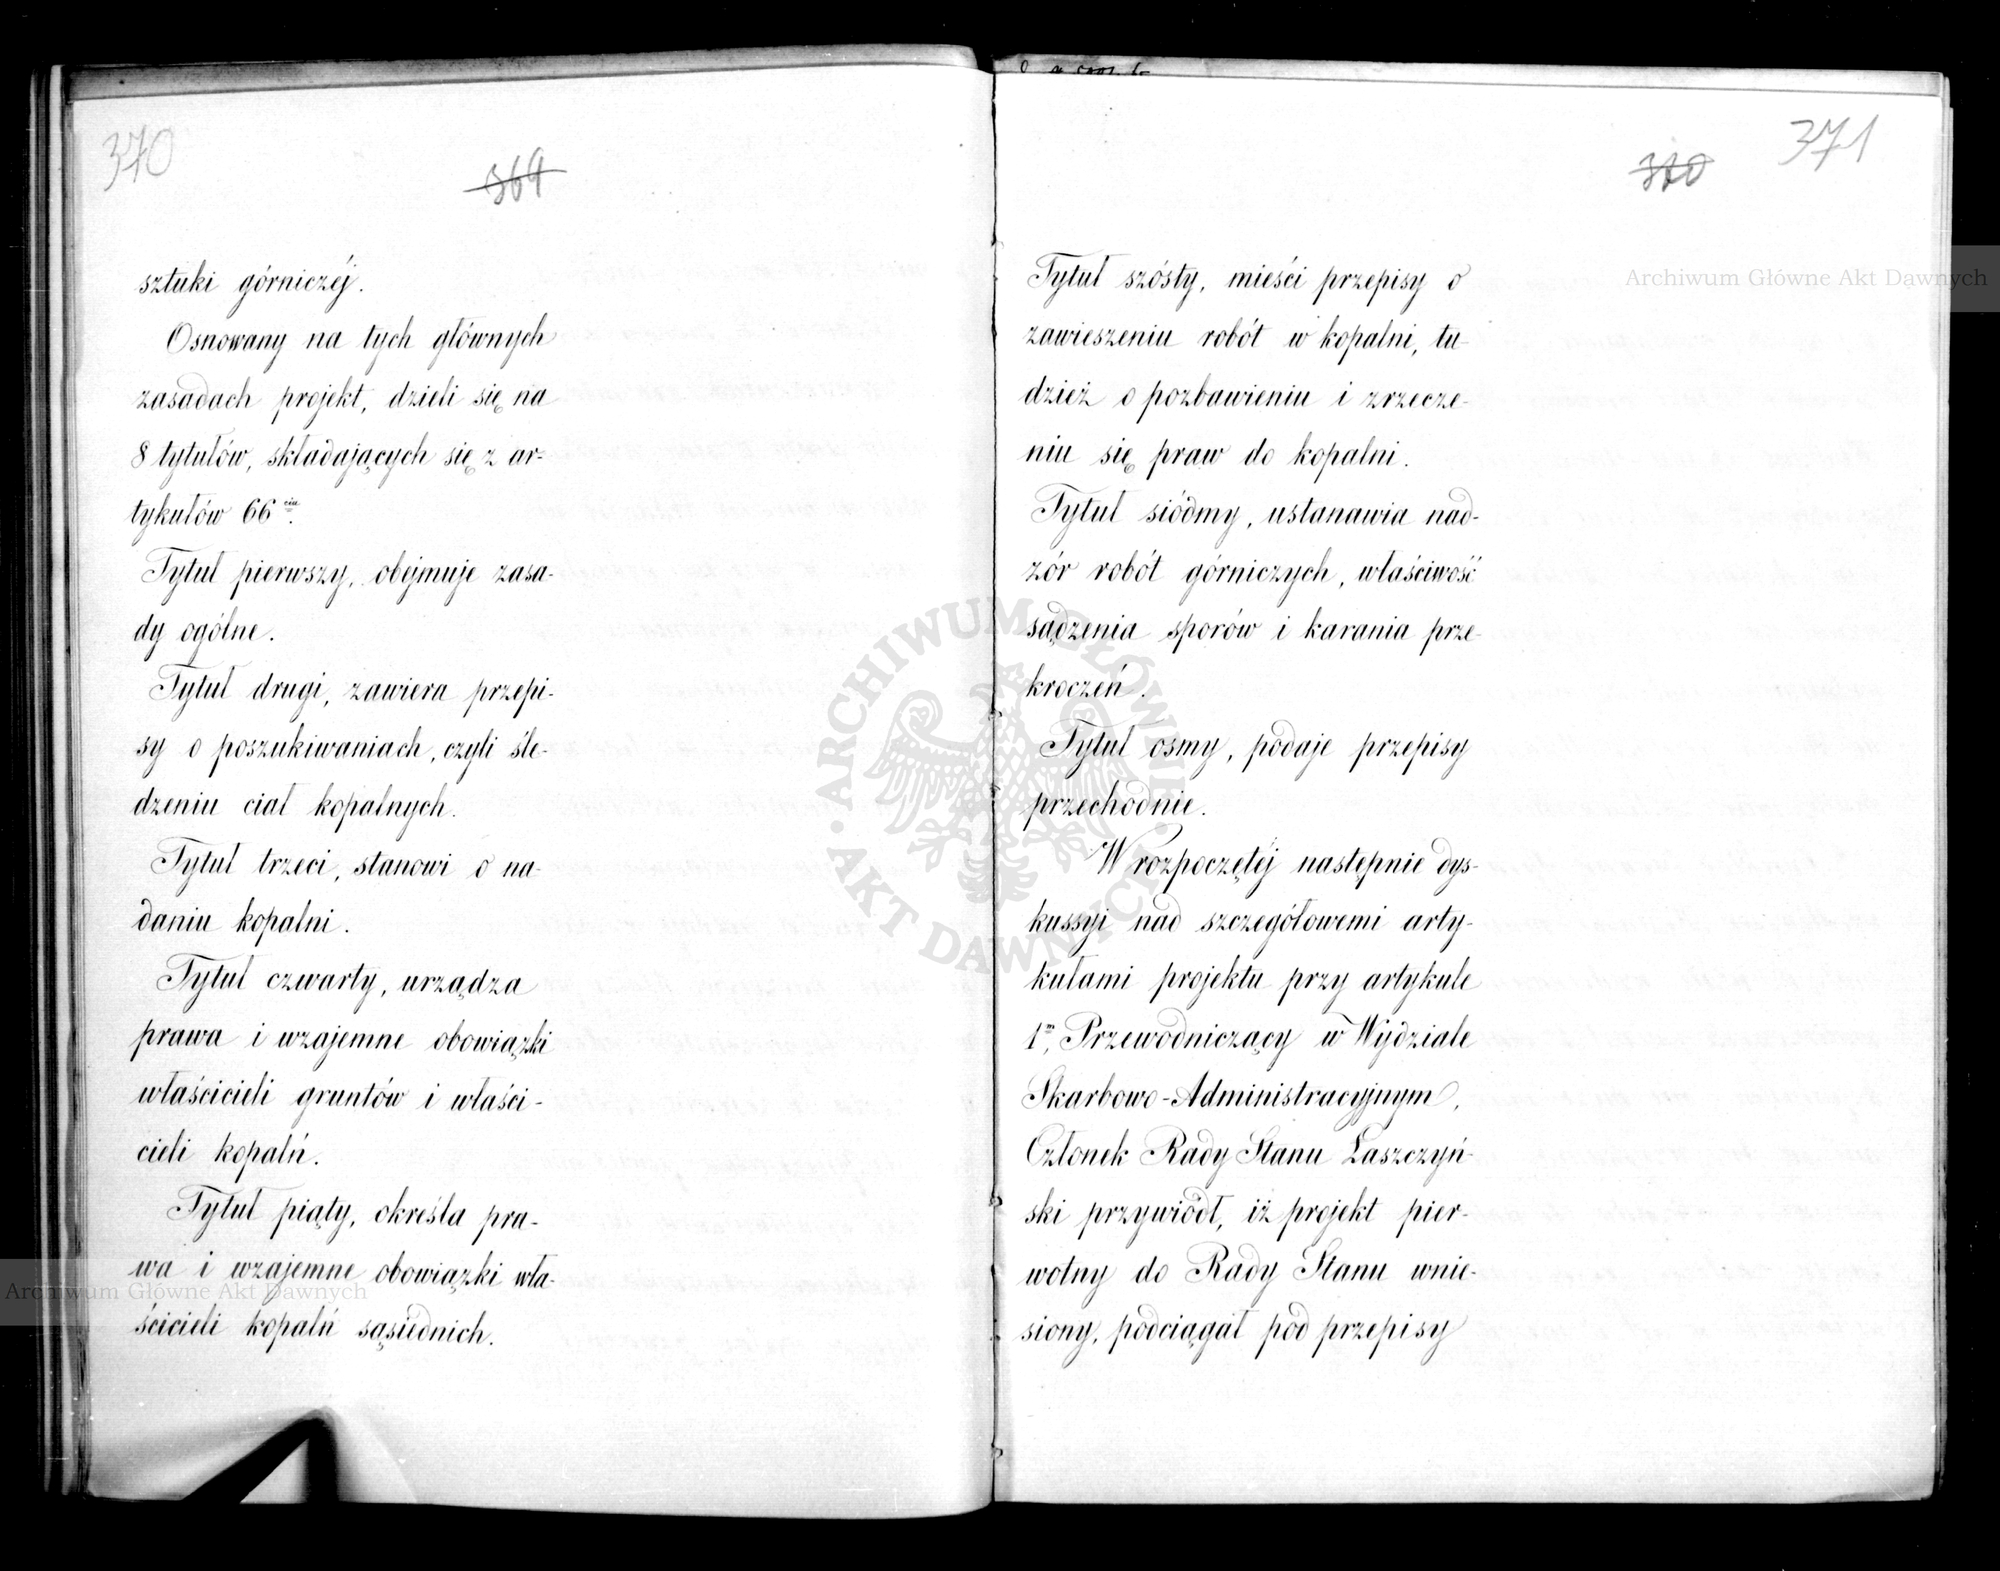 370
369
sztuki górniczéj.
Osnowany na tych głównych
zasadach projekt, dzieli się na
8 tytułów, składających się z ar-
tykułów 66ciu.
Tytuł pierwszy, obejmuje zasa-
dy ogólne.
Tytuł drugi, zawiera przepi-
sy o poszukiwaniach, czyli śle-
dzeniu ciał kopalnych.
Tytuł trzeci, stanowi o na-
daniu kopalni.
Tytuł czwarty, urządza
prawa i wzajemne obowiązki
właścicieli gruntów i właści-
cieli kopalń.
Tytuł piąty, określa pra-
wa i wzajemne obowiązki wła-
ścicieli kopalń sąsiednich.
371
370
Tytuł szósty, mieści przepisy o
zawieszeniu robót w kopalni, tu-
dzież o pozbawieniu i zrzecze-
niu się praw do kopalni.
Tytuł siódmy, ustanawia nad-
zór robót górniczych, właściwość
sądzenia sporów i karania prze-
kroczeń.
Tytuł osmy, podaje przepisy
przechodnie.
W rozpoczętéj następnie dys-
kussyi nad szczegółowemi arty-
kułami projektu przy artykule
1m, Przewodniczący w Wydziale
Skarbowo-Administracyjnym,
Członek Rady Stanu Łaszczyń-
ski przywiódł, iż projekt pier-
wotny do Rady Stanu wnie-
siony, podciągał pod przepisy
Archiwum Główne Akt Dawnych
Archiwum Główne Akt Dawnych
ARCHIWUM GŁÓWNE · AKT DAWNYCH ·